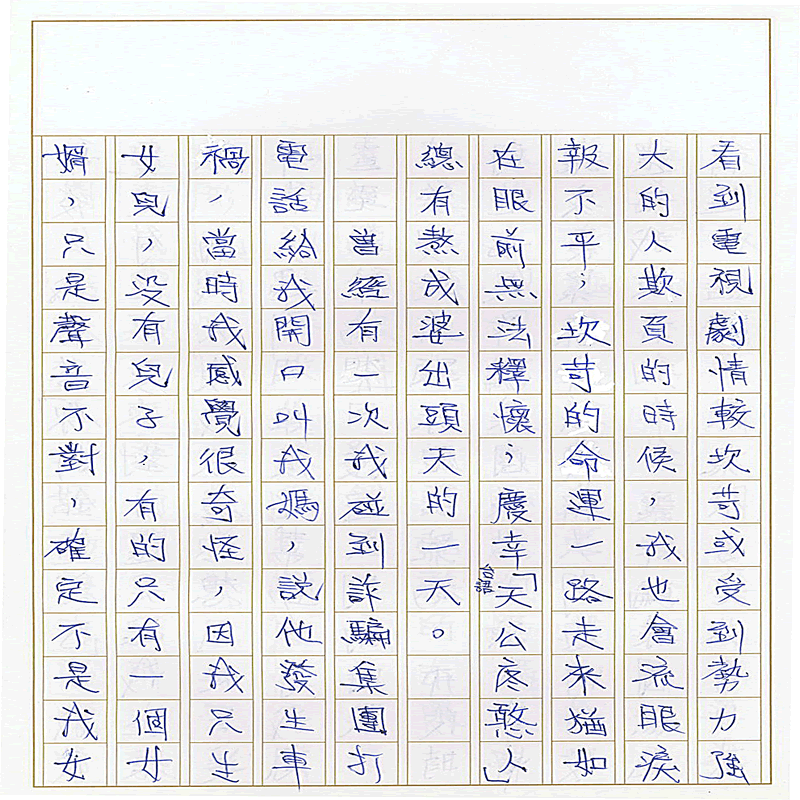 看到電視劇情較坎苛或受到勢力強
大的人欺負的時候，我也會流眼淚
報不平；坎苛的命運一路走來猶如
在眼前無法釋懷；慶幸「天公疼憨人」
台語
總有熬成婆出頭天的一天。
曾經有一次我碰到詐騙集團打
電話給我開口叫我媽，說他發生車
禍，當時我感覺很奇怪，因我只生
女兒，没有兒子，有的只有一個女
婿，只是聲音不對，確定不是我女